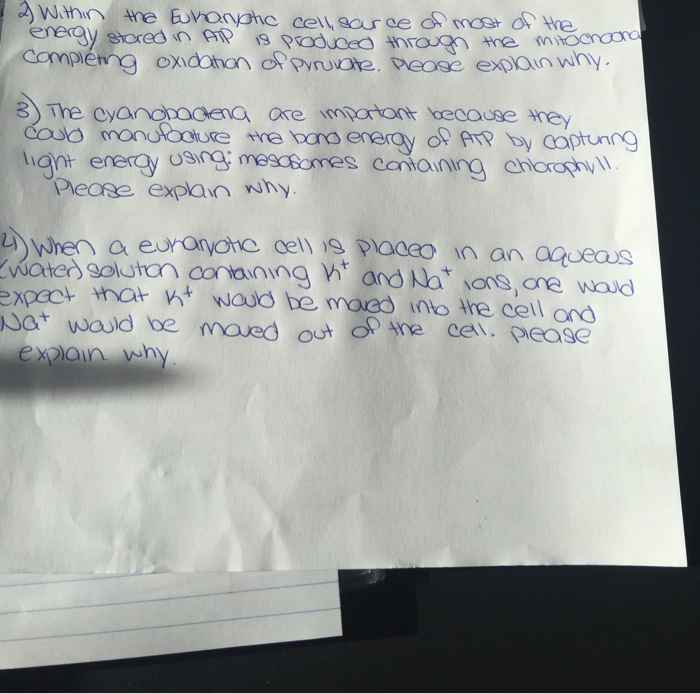 2) Within the Eukaryotic cell, source of most of the
energy stored in ATP is produced through the mitochond
completing oxidation of pyruvate. Please explain why.
3) The cyanobacteria are important because they
could manufacture the bond energy of ATP by capturing
light energy using: mesosomes containing chlorophyll.
Please explain why.
4) When a eukaryotic cell is placed in an aqueous
(water) solution containing K+ and Na+ ions, one would
expect that K+ would be moved into the cell and
Na+ would be moved out of the cell. please
explain why.